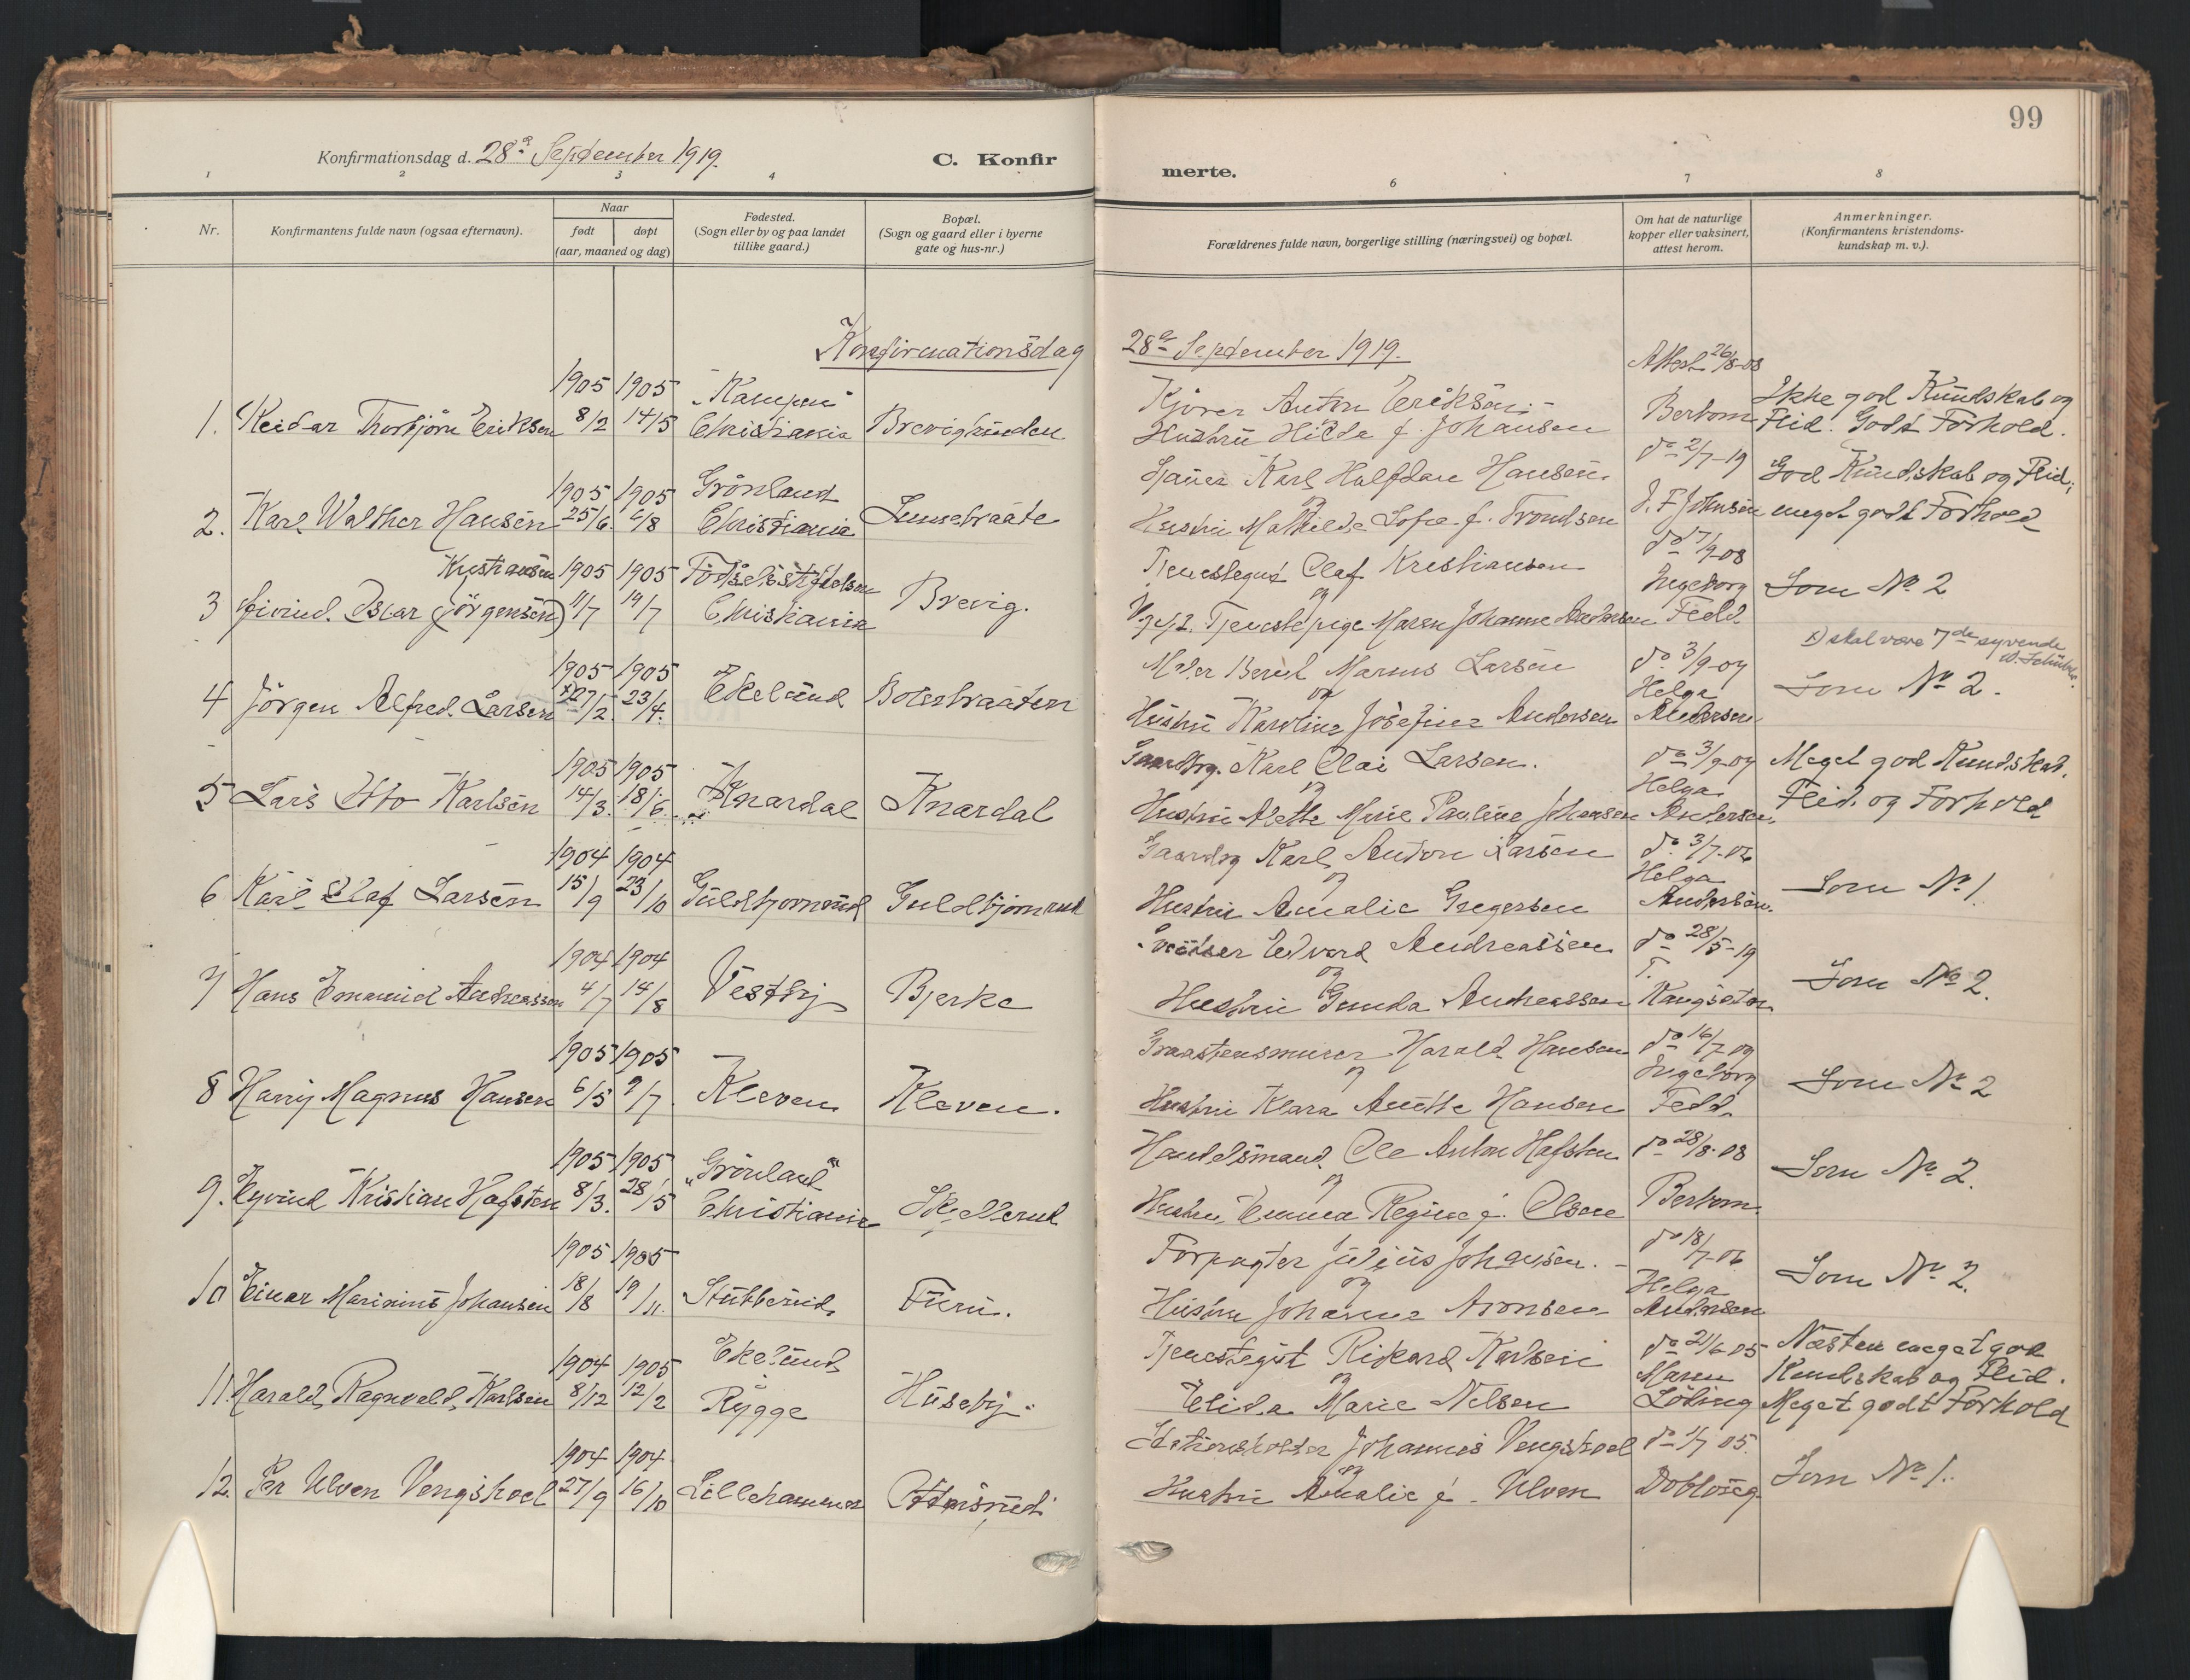 99
Konfirmationsdag d. 28de September 1919.
C. Konfir
merte.
1 2 3 4
6 7 8
Nr.
Konfirmantens fulde navn (ogsaa efternavn).
Naar
født døpt
(aar, maaned og dag)
Fødested.
(Sogn eller by og paa landet
tillike gaard.)
Bopæl.
(Sogn og gaard eller i byerne
gate og hus-nr.)
Forældrenes fulde navn, borgerlige stilling (næringsvei) og bopæl.
Om hat de naturlige
kopper eller vaksinert,
attest herom.
Anmerkninger.
(Konfirmantens kristendoms-
kundskap m. v.).
Konfirmationsdag 28de September 1919.
1905 1905 "Kampen" Kjører Anton Eriksen Attest 26/8-08 Ikke god Kundskab og
1. Reidar Thorbjørn Eriksen 8/2 14/5 Christiania Brevigbunden Hustru Hilda f. Johansen Berbom Flid. Godt Forhold.
1905 1905 Grønland Karl Halfdan Hansen do 2/7-19 God Kundskab og Flid,
2. Karl Walther Hansen 25/6 6/8 Christiania og Hustru Mathilde Sofie f. Trondsen J. F. Johnsen meget godt Forhold
Kristiansen 1905 1905 Fødselsstiftelsen Tjenestegut Olaf Kristiansen do 17/9-08
3 Eivind Oscar (Jørgensen) 11/7 19/7 Christiania Brevig. og Tjenestepige Maren Johanne Andersen Ingeborg Feld Som No 2
x) skal være 7de syvende
1905 1905 Maler Bernt Marius Larsen do 3/9-07
4 Jørgen Alfred Larsen x) 27/2 23/4 Ekelund Botnebraaten og Hustru Karoline Josefine Andersen Helga Andersen Som No 2.
1905 1905 Gaardbrg. Karl Olai Larsen. do 3/9-07 Meget god Kundskab,
5 Lars Otto Karlsen 14/3 18/6 Knardal Knardal og Hustru Alette Marie Pauline Johansen Helga Andersen Flid og Forhold
1904 1904 Gaardbrg Karl Anton Larsen do 3/7-06
6 Karl Olaf Larsen 15/9 23/10 Guldbjørnrud Guldbjørnrud og Hustru Amalie Gregersen Helga Andersen. Som No 1.
1904 1904 Edvard Andreassen do 28/5-19
7 Hans Emanuel Andreassen 4/7 14/8 Vestby Bjerke og Hustru Gunda Andreassen T. Kangseter Som No 2.
1905 1905 Graastensmurer Harald Hansen do 16/7-09
8 Harry Magnus Hansen 6/5 9/7 Kleven Kleven. og Hustru Klara Anette Hansen Ingeborg Feld. Som No 2
1905 1905 "Grønland" Handelsmand Ole Anton Hafsten do 28/8-08
9. Eyvind Kristian Hafsten 8/3 28/5 Christiania Skjellerud og Hustru Emma Regine f. Olsen Berbom. Som No 2.
1905 1905 Forpagter Julius Johansen. do 18/7-06
10 Einar Marinius Johansen 18/8 19/11 Stubberud Furu. og Hustru Johanne Aronsen Helga Andersen Som No 2.
1904 1905 Ekelund Tjenestegut Rikard Karlsen do 21/6-05 Næsten meget god
11. Harald Ragnvald Karlsen 8/12 12/2 i Rygge Huseby og Elida Marie Nelsen Maren Löking Kundskab og Flid. Meget godt Forhold
1904 1904 Stationsholder Johannes Vengshoel do 1/7 05.
12. Per Ulven Vengshoel 27/9 16/10 Lillehammer og Hustru Amalie f. Ulven Dobloug Som No 1.